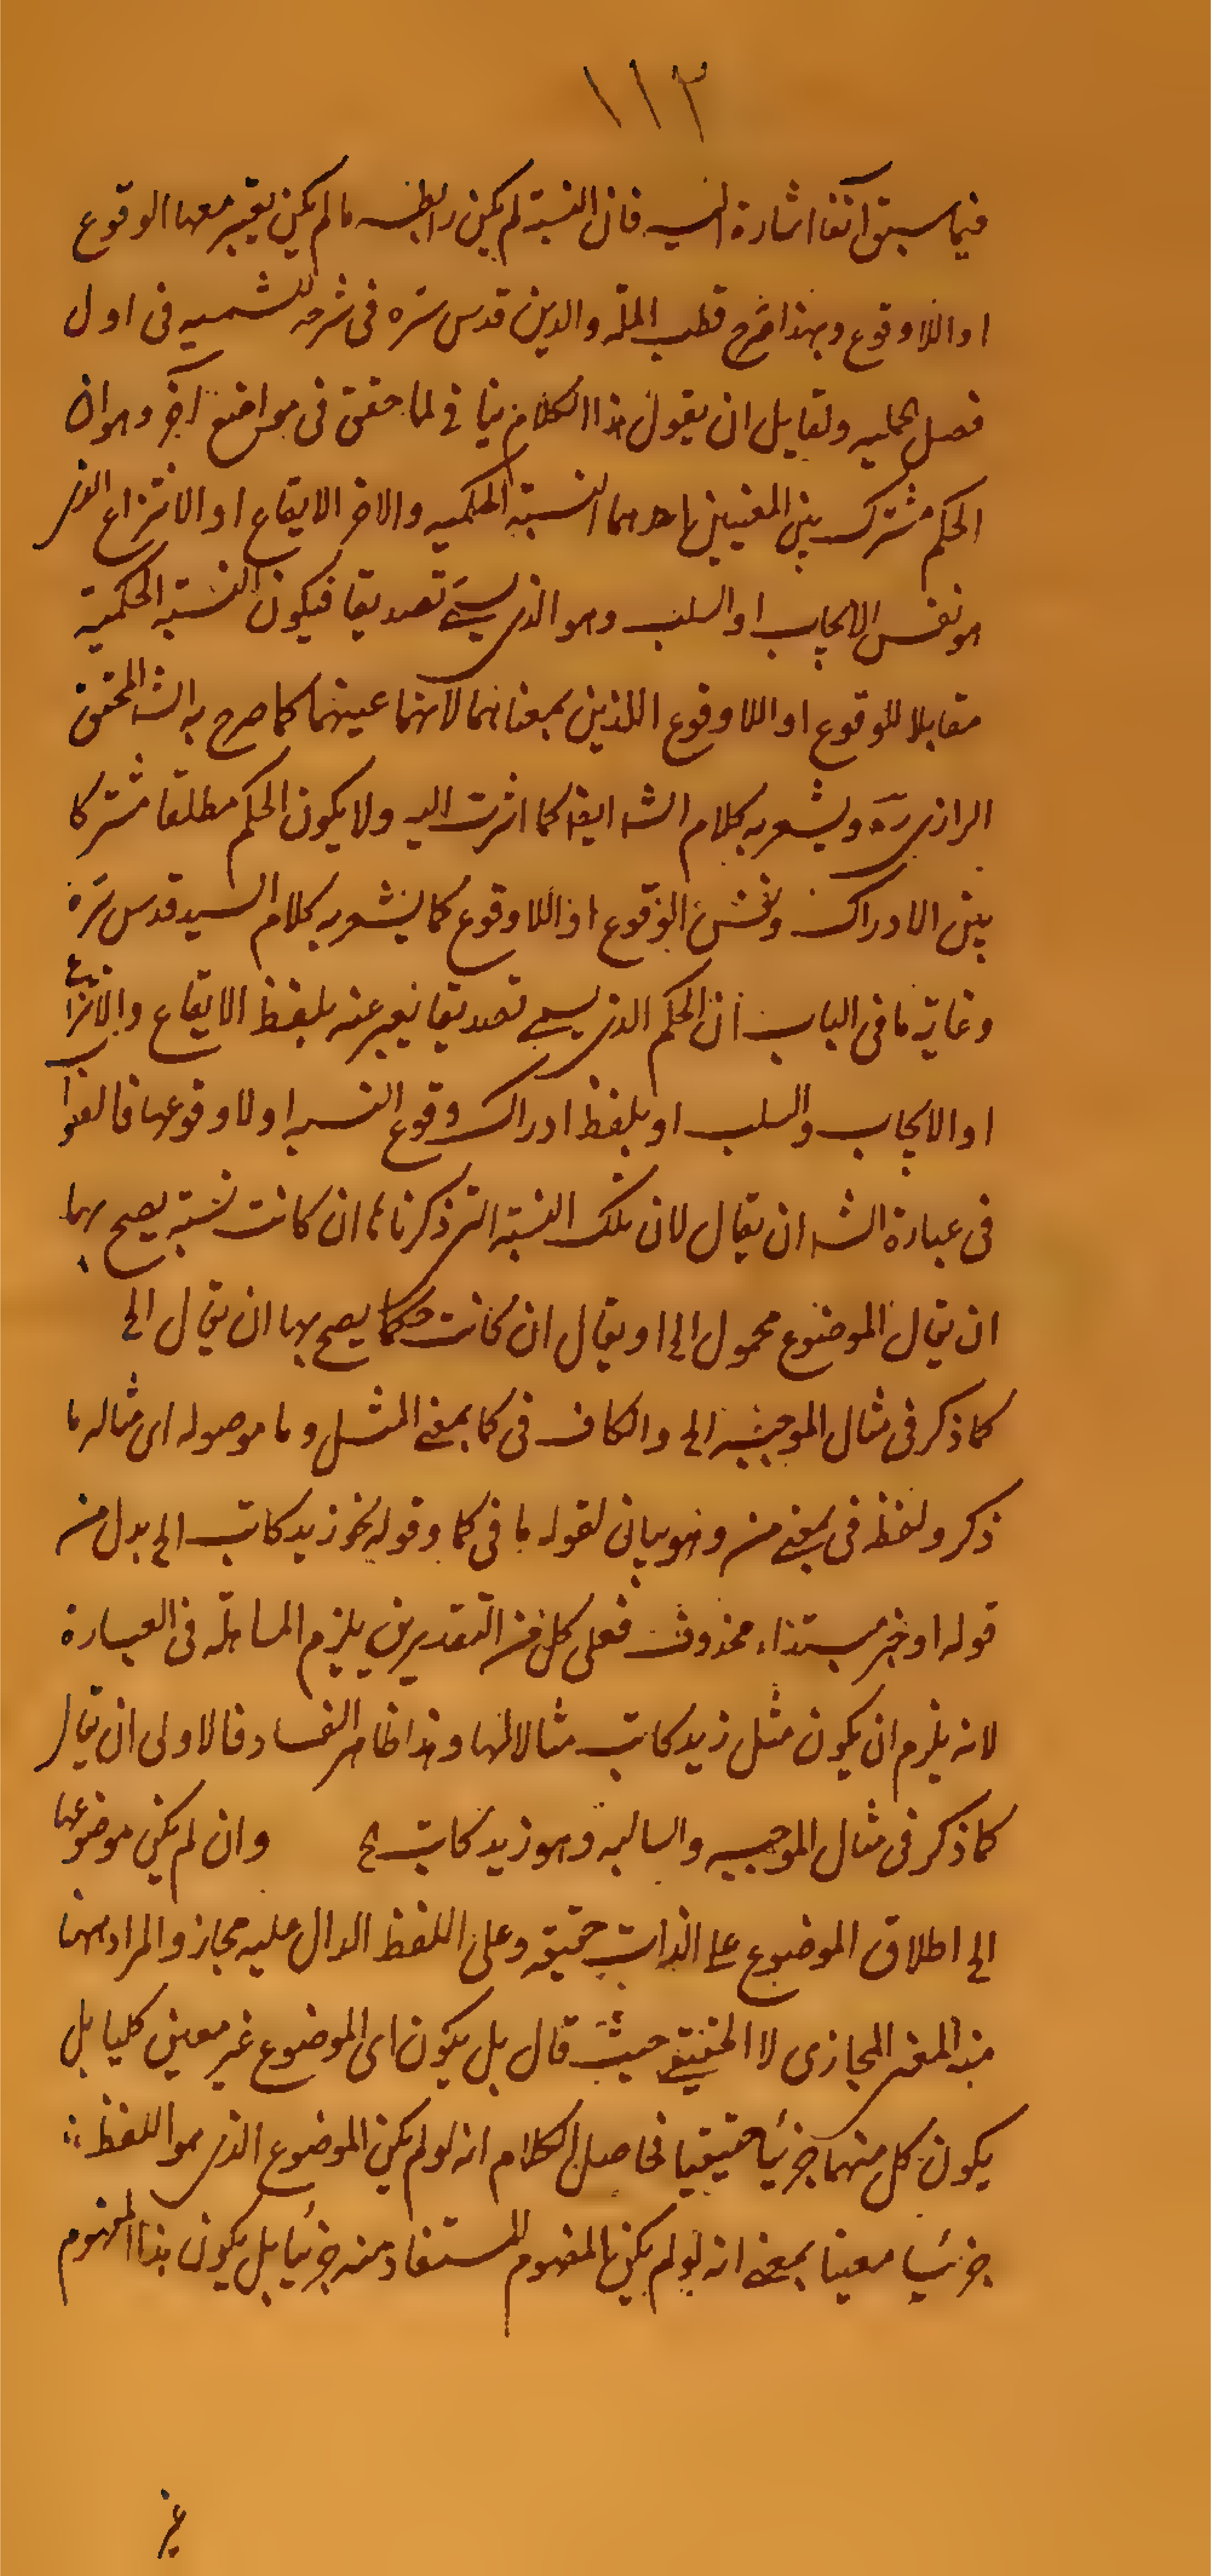 ١١٢
فيما سبق آنفا اشارة اليه فان النسبة لم يكن رابطه ما لم يكن يعتبر معها الوقوع
او اللاوقوع وبهذا صرح قطب الملة والدين قدس سره فى شرحه للشمسيه فى اول
فصل الحمليه ولقايل ان يقول هذا الكلام ينافى لما حقق فى مواضع آخر وهو ان
الحكم مشترك بين المعنيين احدهما النسبة الحكميه والاخر الايقاع او الانتزاع الذى
هو نفس الايجاب او السلب وهو الذى يسمى تصديقا فيكون النسبة الحكمية
مقابلا للوقوع او اللاوقوع اللذين بمعناهما لانهما عينهما كما صرح به الشه المحقق
الرازى ره ويشعر به كلام الشه ايضا كما اشرت اليه ولا يكون الحكم مطلقا مشتركا
بين الادراك ونفس الوقوع او اللاوقوع كما يشعر به كلام السيد قدس سره
وغاية ما فى الباب ان الحكم الذى يسمى تصديقا يعبر عنه بلفظ الايقاع والانتزاع
او الايجاب والسلب او بلفظ ادراك وقوع النسبه او لا وقوعها فالصواب
فى عبارة الشه ان يقال لان تلك النسبة التى ذكرناها ان كانت نسبة يصح بها
ان يقال الموضوع محمول الخ او يقال ان كانت حكما يصح بها ان يقال الخ
كما ذكر فى مثال الموجبه الخ والكاف فى كما بمعنى المثل وما موصوله اى مثاله ما
ذكر ولفظ فى بمعنى من وهو بيان لقوله ما فى كما وقوله نحو زيد كاتب الخ بدل من
قوله او خبر مبتداء محذوف فعلى كل من التقديرين يلزم المساهله فى العبارة
لانه يلزم ان يكون مثل زيد كاتب مثالا لها وهذا ظاهر الفساد فالاولى ان يقال
كما ذكر فى مثال الموجبه والسالبه وهو زيد كاتب الخ وان لم يكن موضوعها
الخ اطلاق الموضوع على الذات حقيقه وعلى اللفظ الدال عليه مجاز والمراد ههنا
هذا المعنى المجازى لا الحقيقى حيث قال بل يكون اى الموضوع غير معين كليا بل
يكون كل منهما جزئيا حقيقيا فحاصل الكلام انه لو لم يكن الموضوع الذى هو اللفظ
جزئيا معينا بمعنى انه لو لم يكن المفهوم المستفاد منه جزئيا بل يكون هذا المفهوم
غير